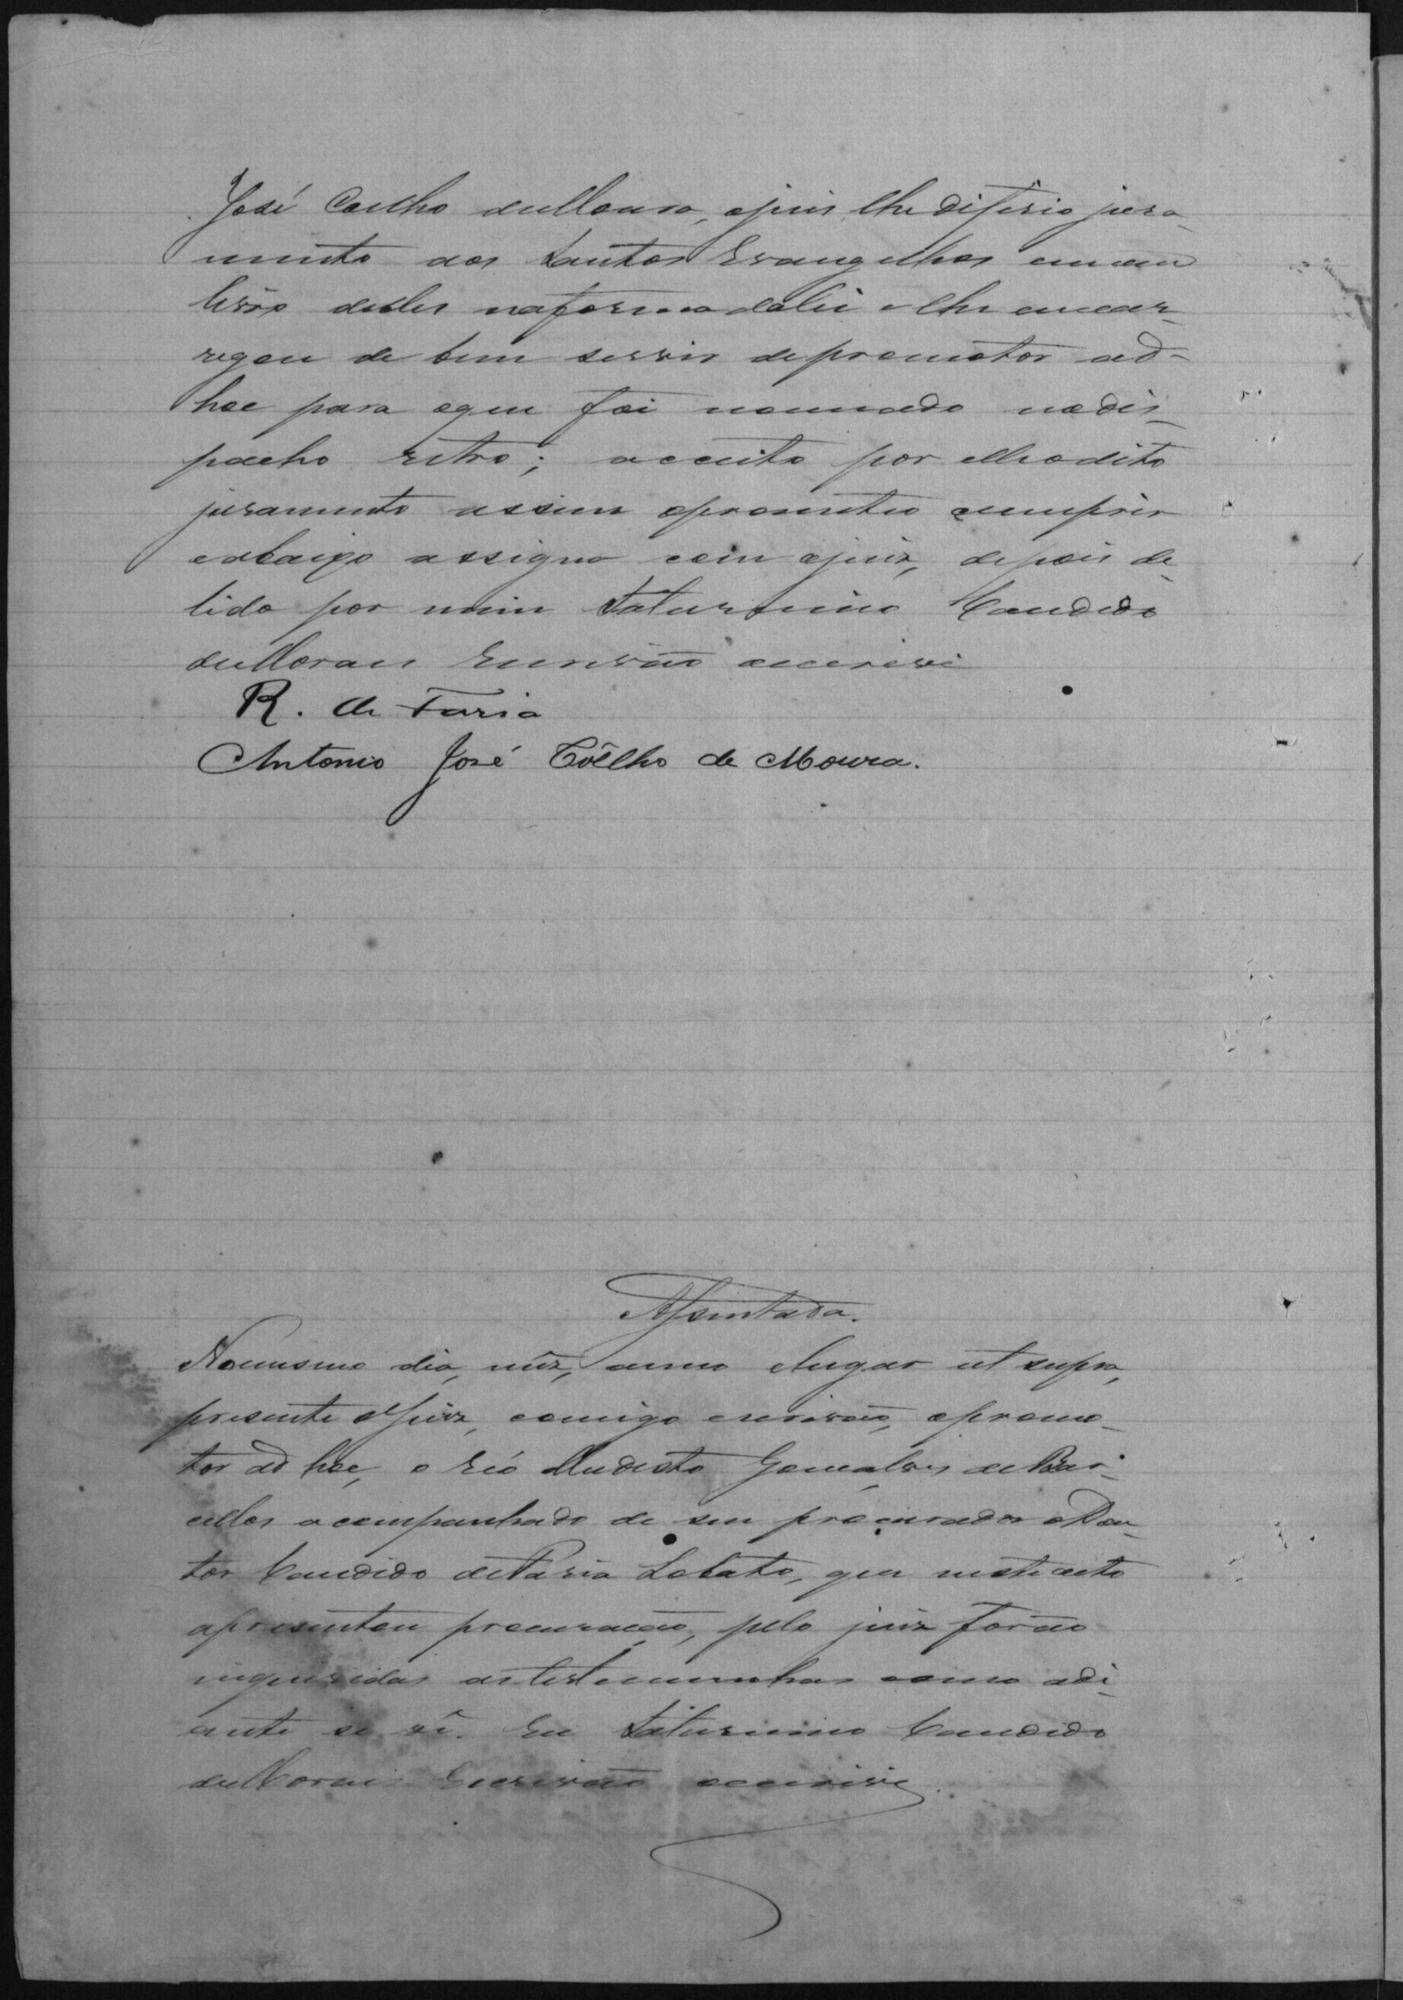 José Coelho de Moura, o juis lhe diferio jura-
mento aos Santos Evangelhos em um
livro delles na forma da lei e lhe encar-
regou de bem servir de promotor ad-
hoc para o que foi nomeado no des-
pacho retro; acceito por elle o dito
juramento assim o prometteo cumprir
e abaixo assigna com o juiz, depois de
lido por mim Saturnino Candido
de Moraes Escrivão o escrevi
R. de Faria
Antonio José Coêlho de Moura.
Assentada.
No mesmo dia, mêz, anno e lugar ut supra,
presente o Juiz, comigo escrivão, o promo-
tor ad hoc, o réo Modesto Gonçalves de Bar-
cellos acompanhado de seu procurador o Dou-
tor Candido de Faria Lobato, que neste acto
apresentou procuração, pelo juiz forão
inqueridas as testemunhas como adi-
ante se vê. Eu Saturnino Candido
de Moraes Escrivão o escrevi